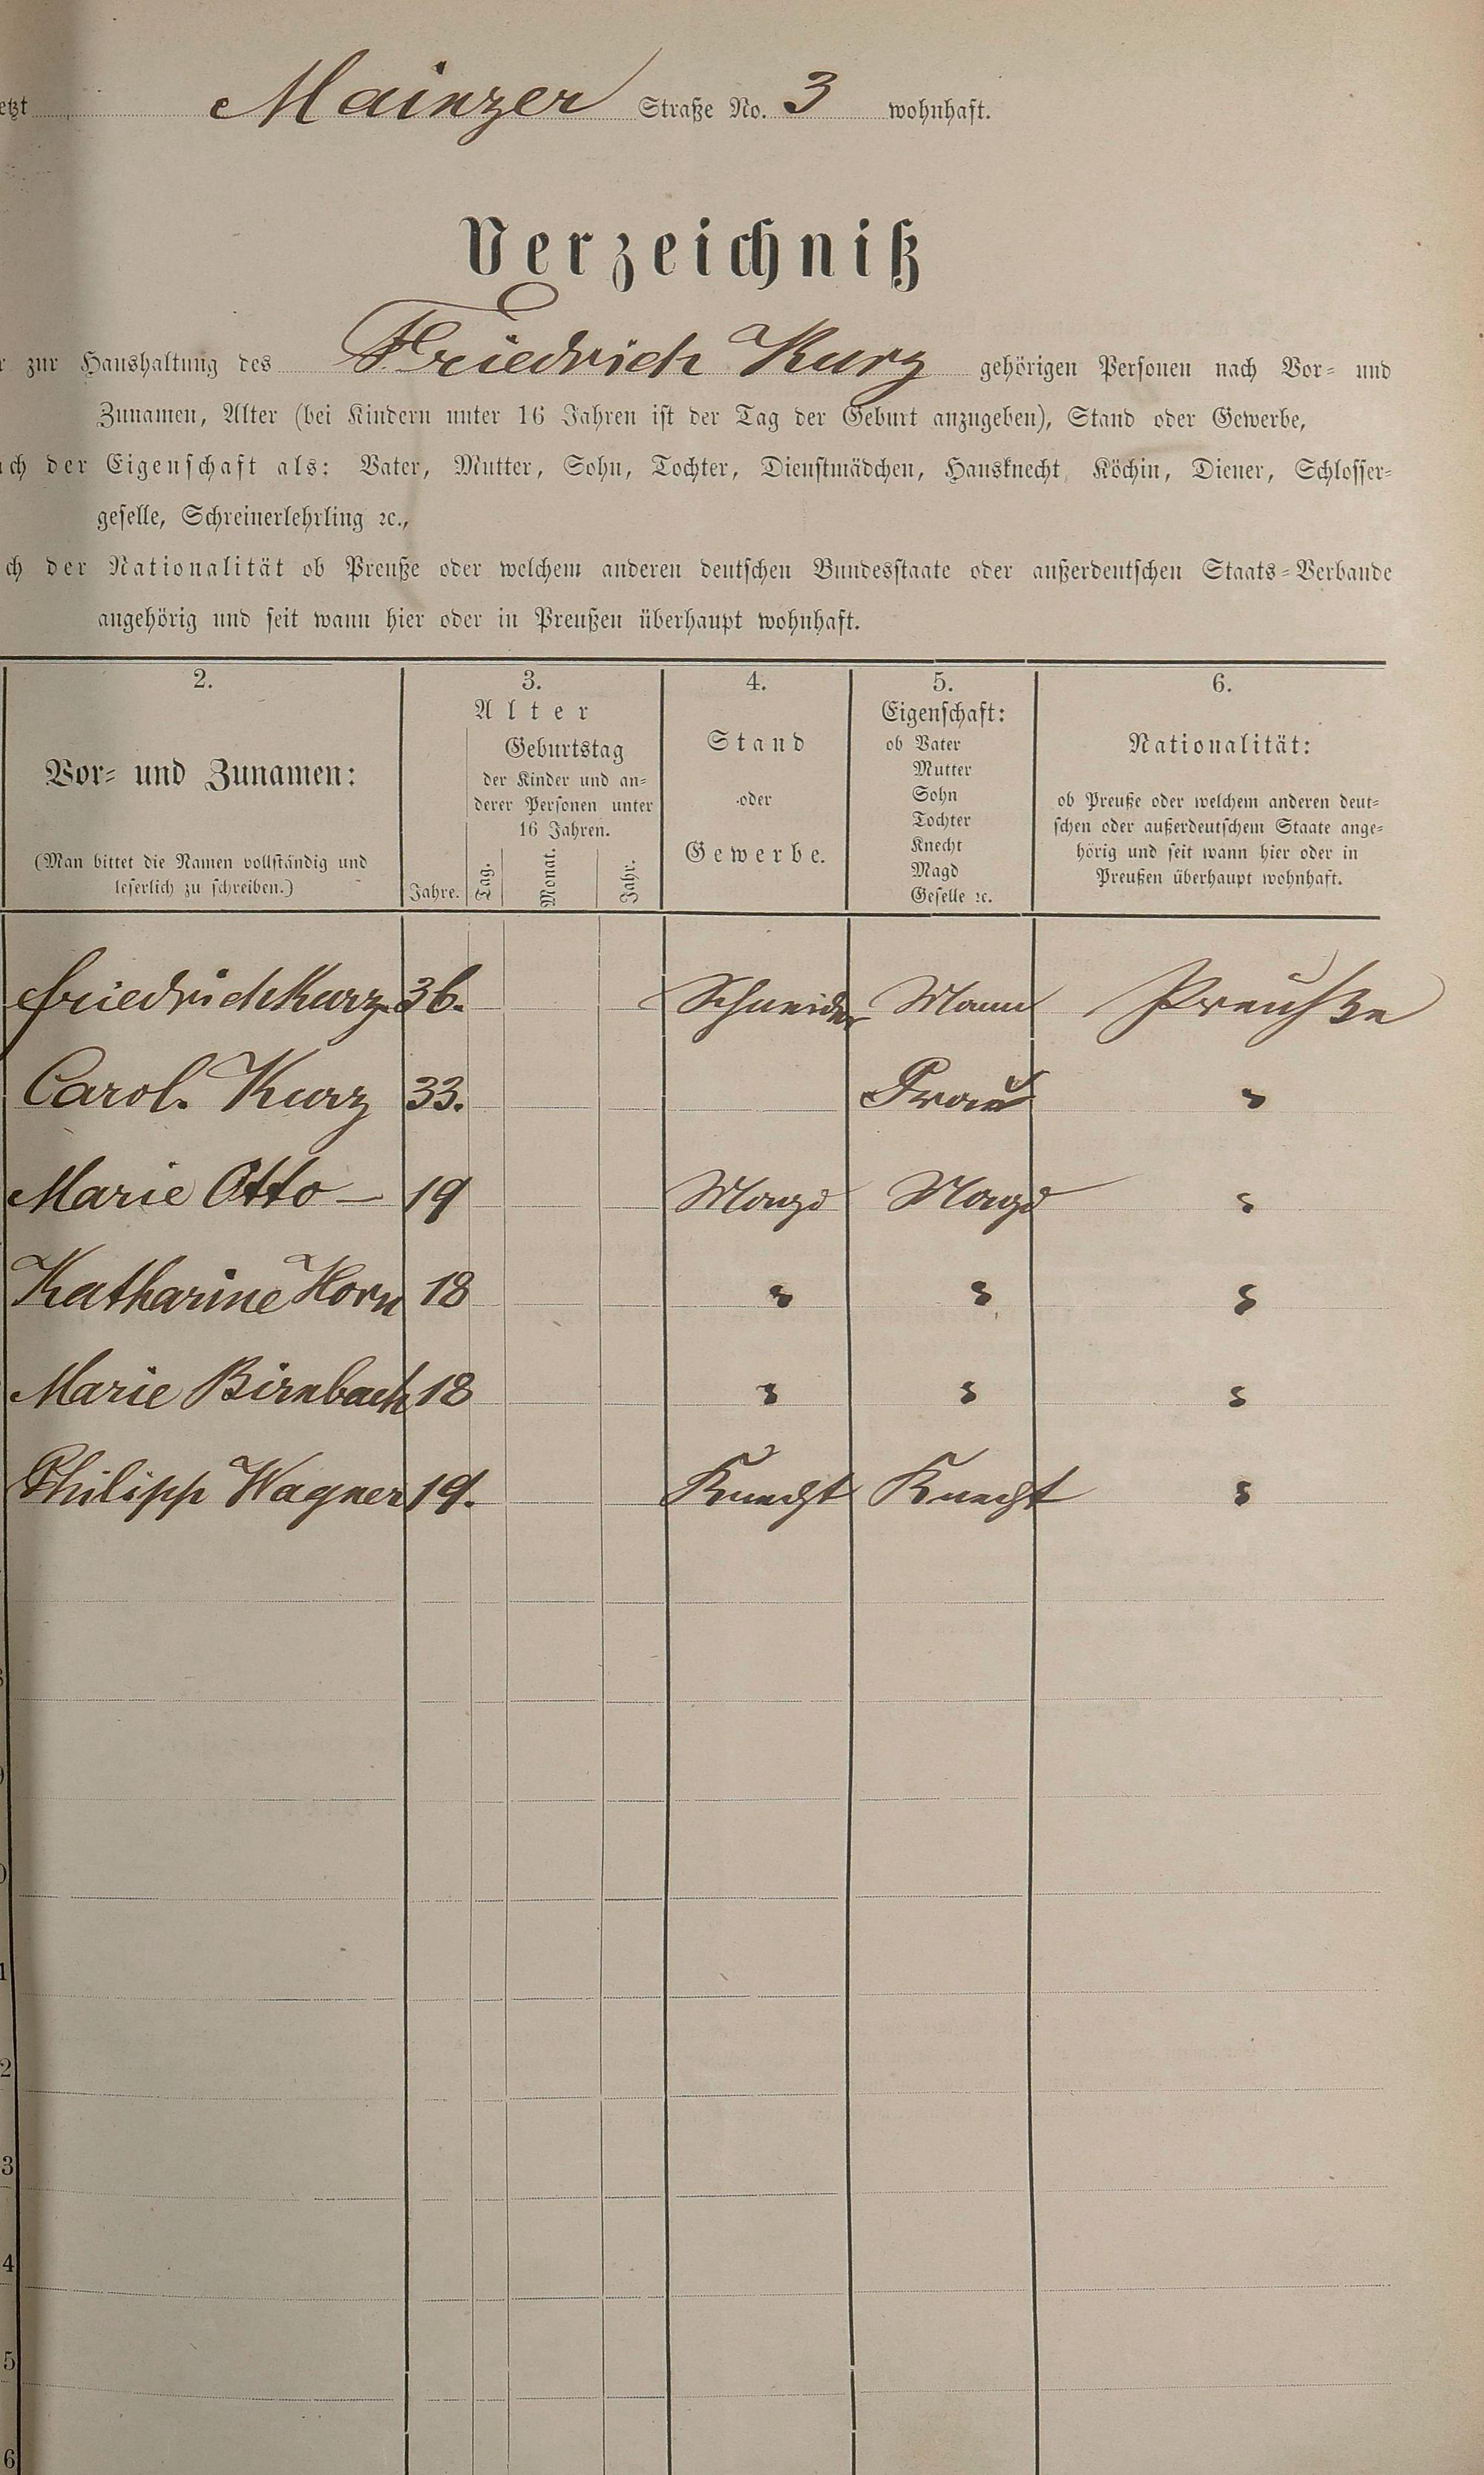 etzt Mainzer Straße No. 3 wohnhaft.
Verzeichniß
r zur Haushaltung des Friedrich Kurz gehörigen Personen nach Vor- und
Zunamen, Alter (bei Kindern unter 16 Jahren ist der Tag der Geburt anzugeben), Stand oder Gewerbe,
ch der Eigenschaft als: Vater, Mutter, Sohn, Tochter, Dienstmädchen, Hausknecht, Köchin, Diener, Schlosser-
geselle, Schreinerlehrling ꝛc.,
ch der Nationalität ob Preuße oder welchem anderen deutschen Bundesstaate oder außerdeutschen Staats-Verbande
angehörig und seit wann hier oder in Preußen überhaupt wohnhaft.
2.
Vor- und Zunamen:
(Man bittet die Namen vollständig und
leserlich zu schreiben.)
3.
Alter
Jahre.
Geburtstag
der Kinder und an-
derer Personen unter
16 Jahren.
Tag.
Monat.
Jahr.
4.
Stand
oder
Gewerbe.
5.
Eigenschaft:
ob Vater
Mutter
Sohn
Tochter
Knecht
Magd
Geselle ꝛc.
6.
Nationalität:
ob Preuße oder welchem anderen deut-
schen oder außerdeutschem Staate ange-
hörig und seit wann hier oder in
Preußen überhaupt wohnhaft.
Friedrich Kurz 36. Schneider Mann Preuße
Carol. Kurz 33. Frau "
Marie Otto — 19 Magd Magd "
Katharine Horn 18 " " "
Marie Birnbach 18 " " "
Philipp Wagner 19. Knecht Knecht "
1
2
3
4
5
6